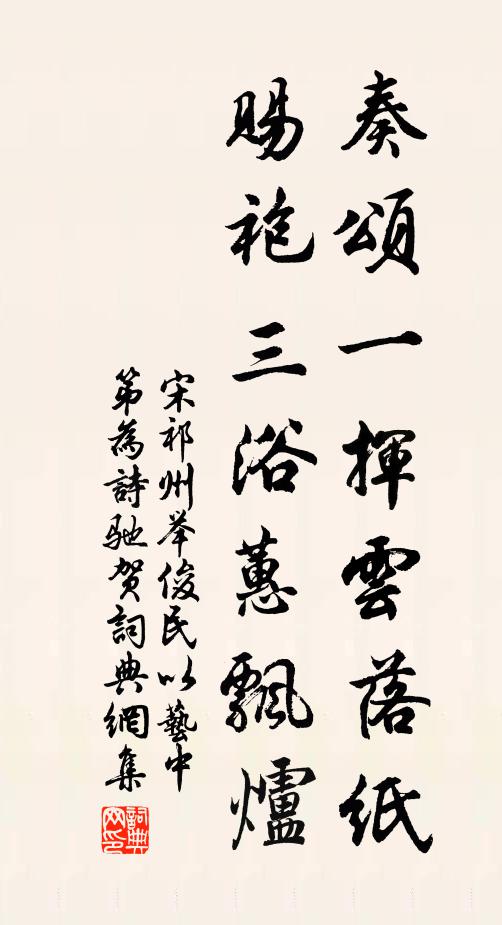 奏頌一揮雲落紙
賜袍三浴蕙飄爐
宋祁州举俊民以藝中
第為詩馳贺詞典網集
詞典
网印